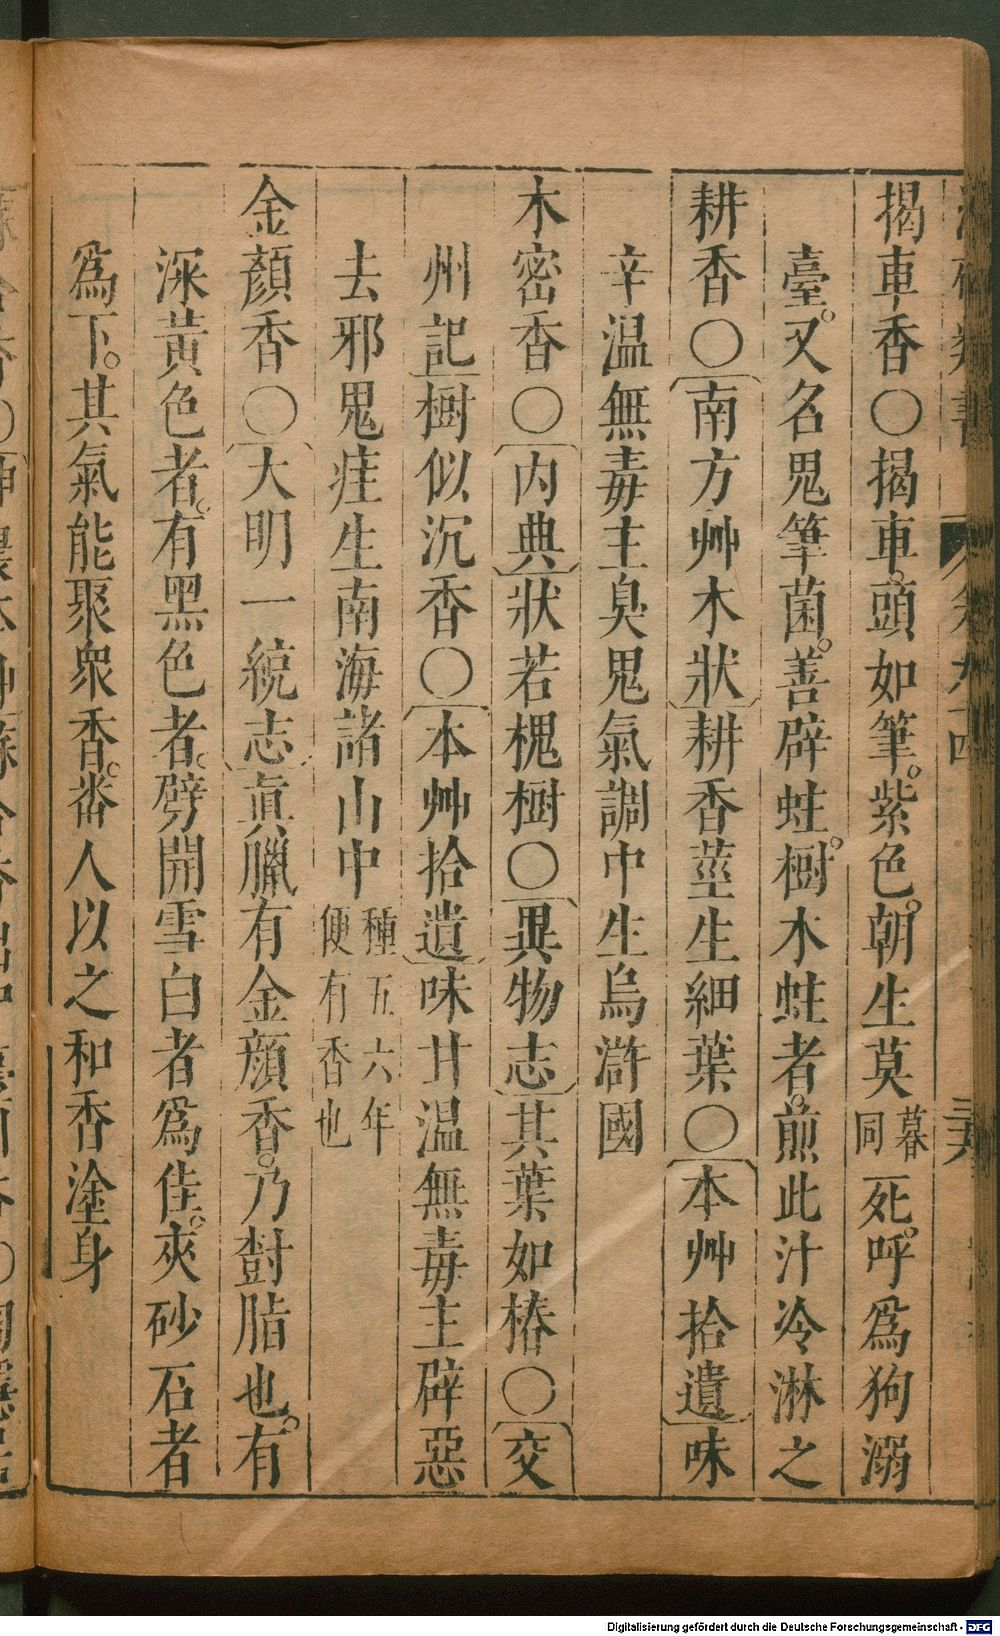 揭車香〇揭車。頭如筆。紫色。朝生莫暮同死。呼爲狗溺
臺。又名鬼筆菌。善辟蛀。樹木蛀者。煎此汁冷淋之
耕香〇南方艸木狀耕香莖生細葉〇本艸拾遺味
辛温無毒主臭鬼氣調中生烏滸國
木密香〇内典狀若槐樹〇異物志其葉如椿〇交
州記樹似沉香〇本艸拾遺味甘温無毒主辟惡
去邪鬼疰生南海諸山中種五六年便有香也
金顏香〇大明一統志眞臘有金顔香。乃尌脂也。有
深黃色者。有黑色者。劈開雪白者爲佳。夾砂石者
爲下。其氣能聚衆香。畨人以之和香塗身
Digitalisierung gefördert durch die Deutsche Forschungsgemeinschaft - DFG